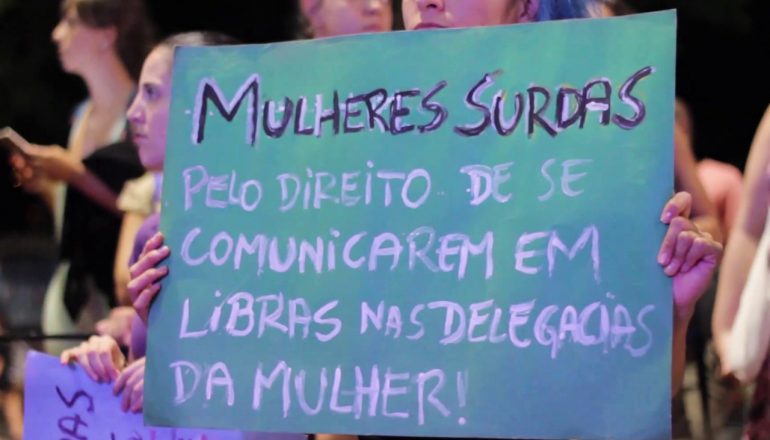 MULHERES SURDAS
PELO DIREITO DE SE
COMUNICAREM EM
LIBRAS NAS DELEGACIAS
DA MULHER!